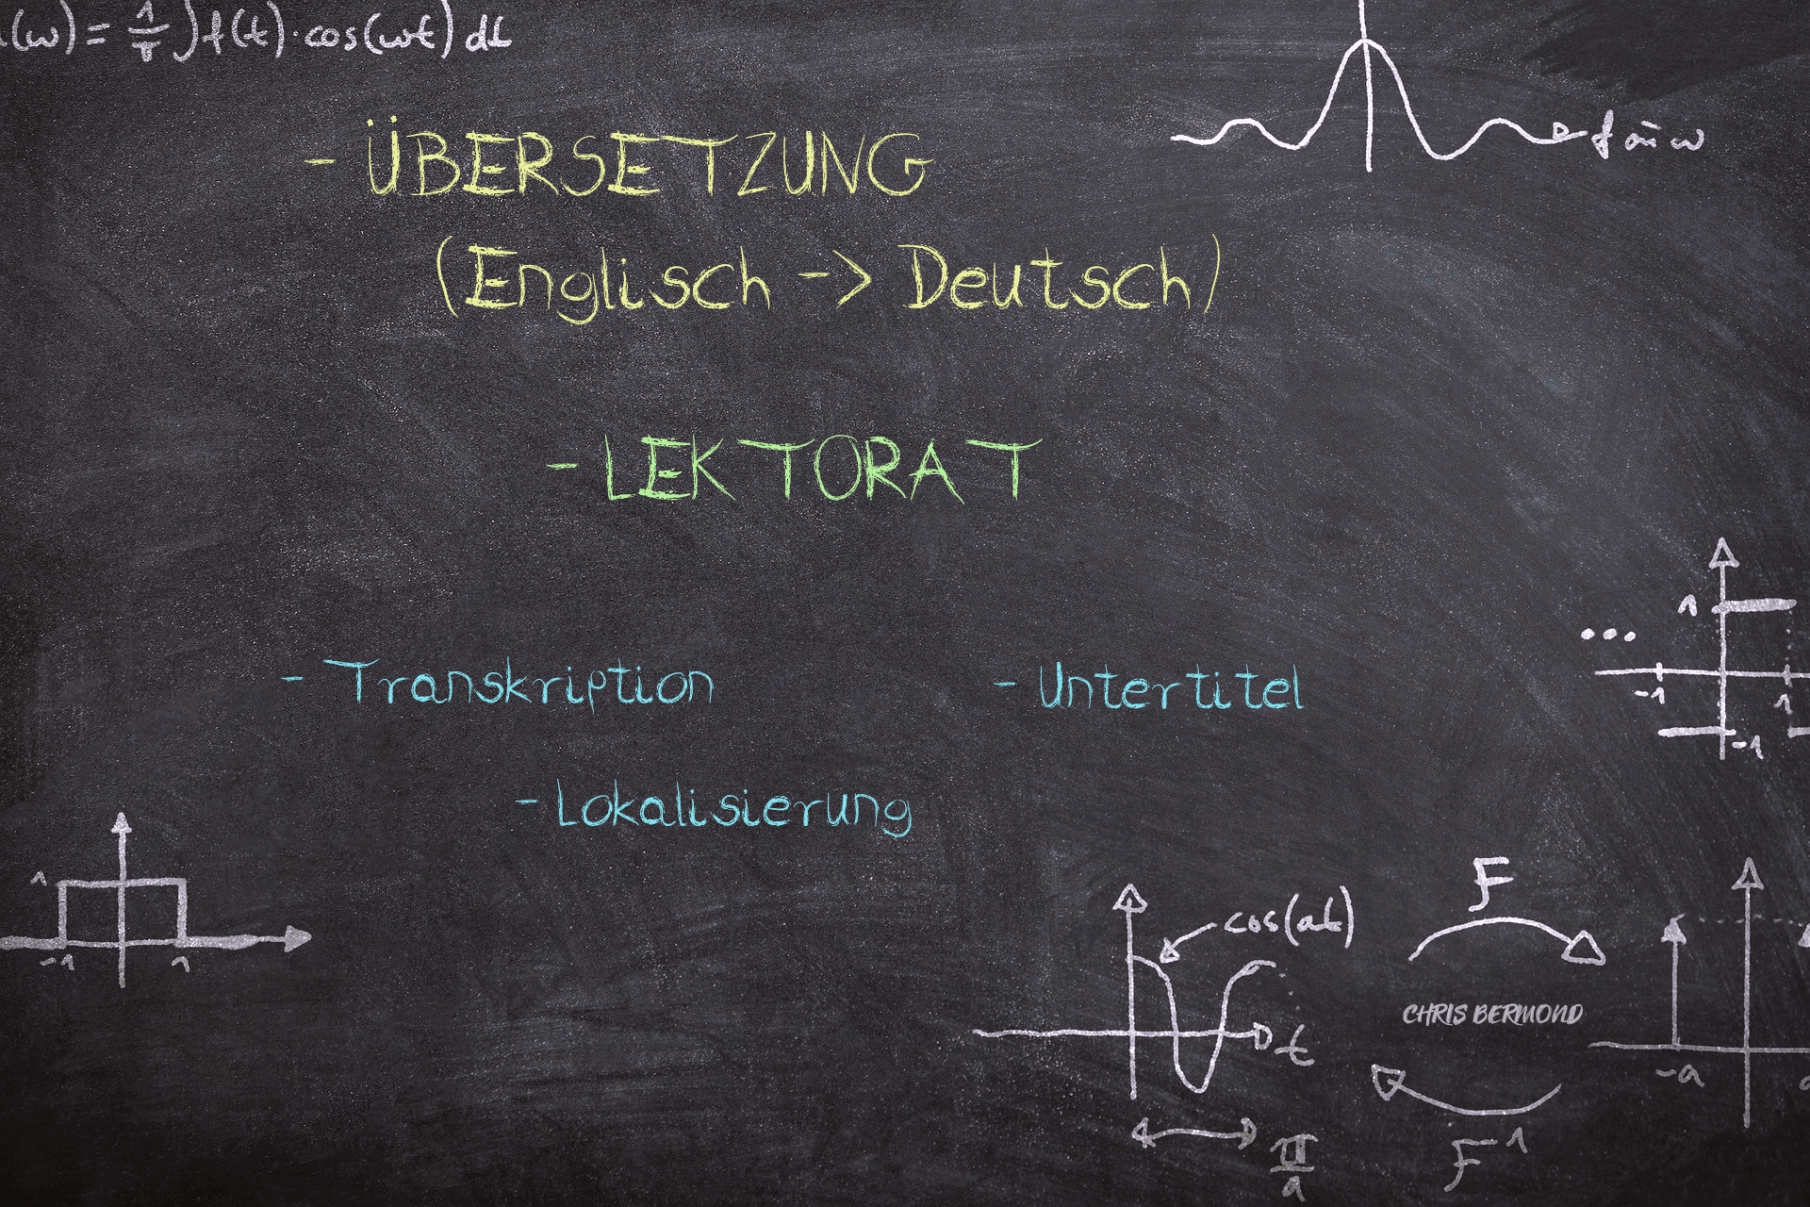 (ω) = 1/T ∫ f(t) · cos(ωt) dt
- ÜBERSETZUNG
(Englisch -> Deutsch)
- LEKTORAT
- Transkription
- Untertitel
- Lokalisierung
1
-1 1
...
1
-1 1
-1
cos(at)
t
π/a
F
CHRIS BERMOND
F⁻¹
-a